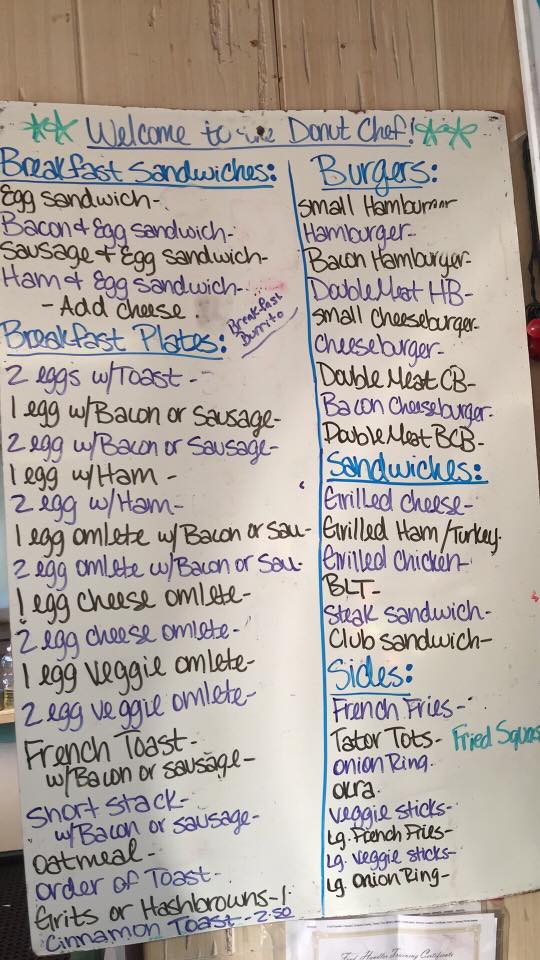 Welcome to the Donut Chef!
Breakfast Sandwiches:
Egg sandwich-
Bacon & Egg sandwich-
Sausage & Egg sandwich-
Ham & Egg sandwich-
- Add cheese
Breakfast Burrito
Breakfast Plates:
2 eggs w/Toast -
1 egg w/Bacon or Sausage-
2 egg w/Bacon or Sausage-
1 egg w/Ham -
2 egg w/Ham-
1 egg omlete w/Bacon or Sau-
2 egg omlete w/Bacon or Sau-
1 egg cheese omlete-
2 egg cheese omlete-
1 egg veggie omlete-
2 egg veggie omlete-
French Toast-
w/Bacon or sausage-
Short stack-
w/Bacon or sausage-
oatmeal-
order of Toast-
Grits or Hashbrowns-1.
Cinnamon Toast--2.50
Burgers:
small Hamburger
Hamburger-
Bacon Hamburger-
Double Meat HB-
small cheeseburger-
cheeseburger-
Double Meat CB-
Bacon Cheeseburger-
Double Meat BCB-
Sandwiches:
Grilled cheese-
Grilled Ham/Turkey-
Grilled chicken-
BLT-
Steak sandwich-
Club sandwich-
Sides:
French Fries-
Tator Tots- Fried Squas
onion Ring-
okra-
veggie sticks-
Lg. French Fries-
Lg. veggie sticks-
Lg. onion Ring-
Food Handler Training Certificate